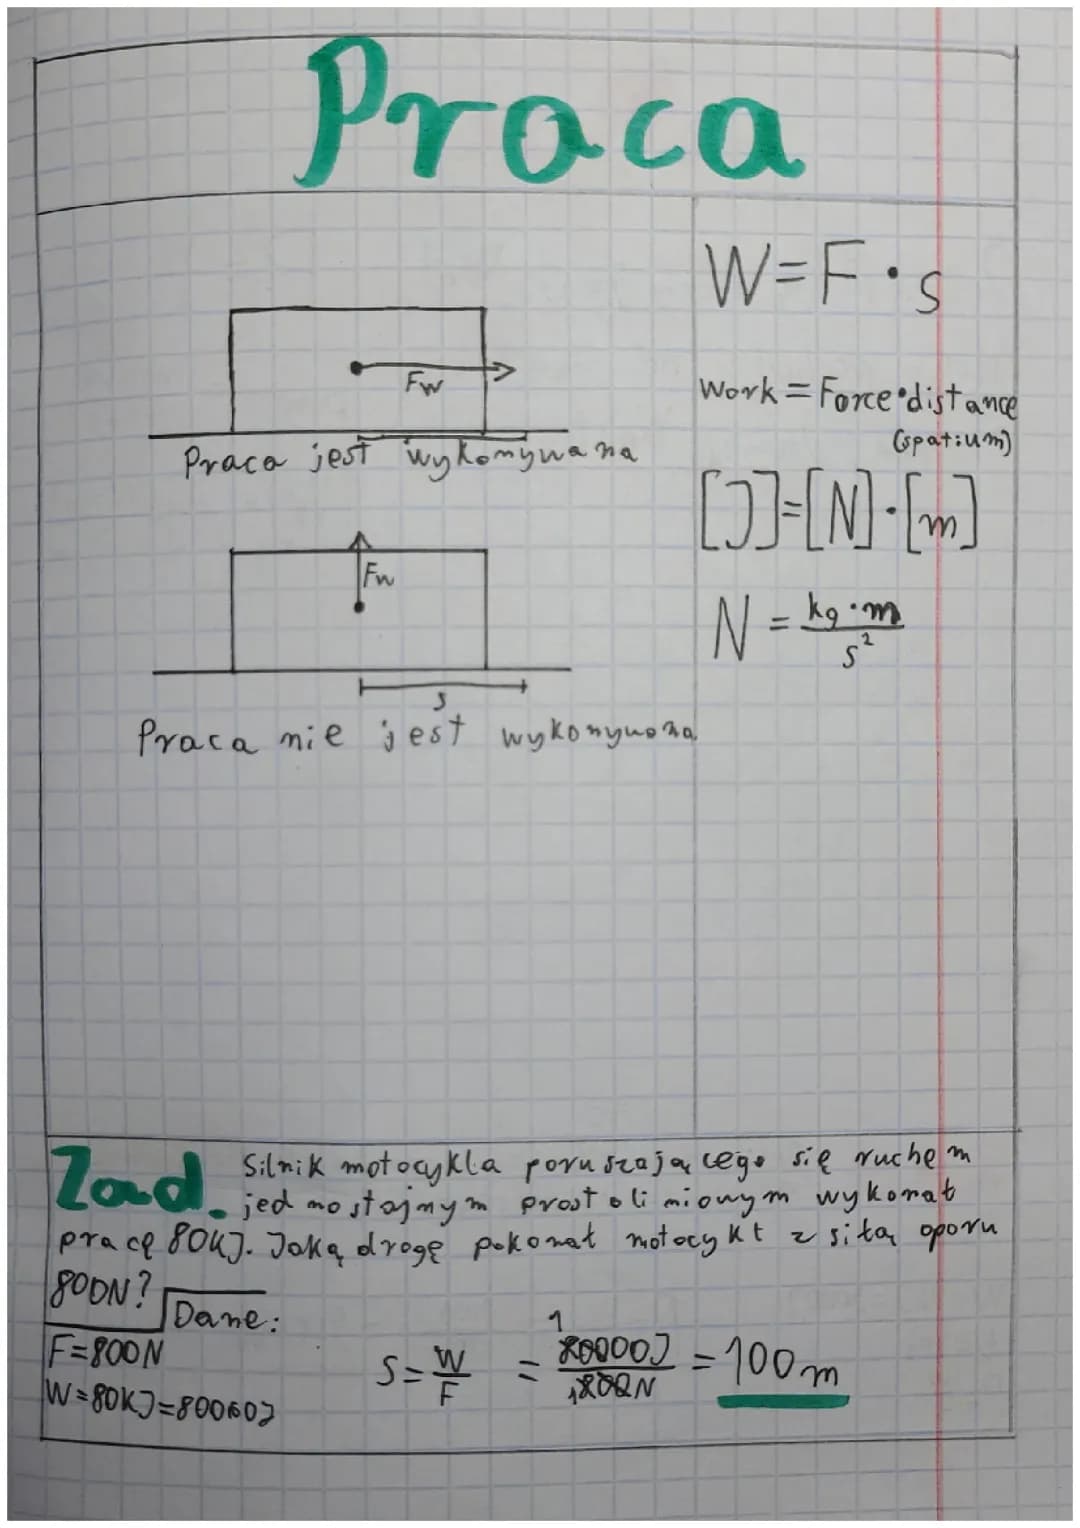 Praca
W=F·s
Fw
Work = Force·distance
(spatium)
Praca jest wykonywana
[J]=[N]·[m]
Fw
N = kg·m / s²
s
Praca nie jest wykonywana
Zad. Silnik motocykla poruszającego się ruchem
jednostajnym prostoliniowym wykonał
pracę 80kJ. Jaką drogę pokonał motocykl z siłą oporu
800N?
Dane:
F=800N
W=80kJ=80000J
S = W/F = 80000J / 800N = 100m
1
1